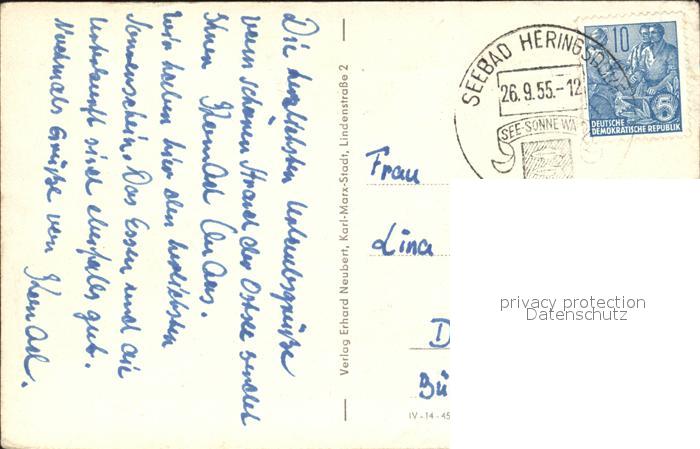 Die herzlichsten Urlaubsgrüße
vom schönen Strand der Ostsee sendet
Ihnen Konrad
Wir haben hier den herrlichsten
Sonnenschein. Das Essen und die
Unterkunft sind ebenfalls gut.
Nochmals Grüße von Konrad.
Verlag Erhard Neubert, Karl-Marx-Stadt, Lindenstraße 2
SEEBAD HERINGSDORF
26.9.55.-12
SEE-SONNE-WA
10
5
DEUTSCHE
DEMOKRATISCHE REPUBLIK
Frau
Lina
D
Bü
IV-14-45
privacy protection
Datenschutz